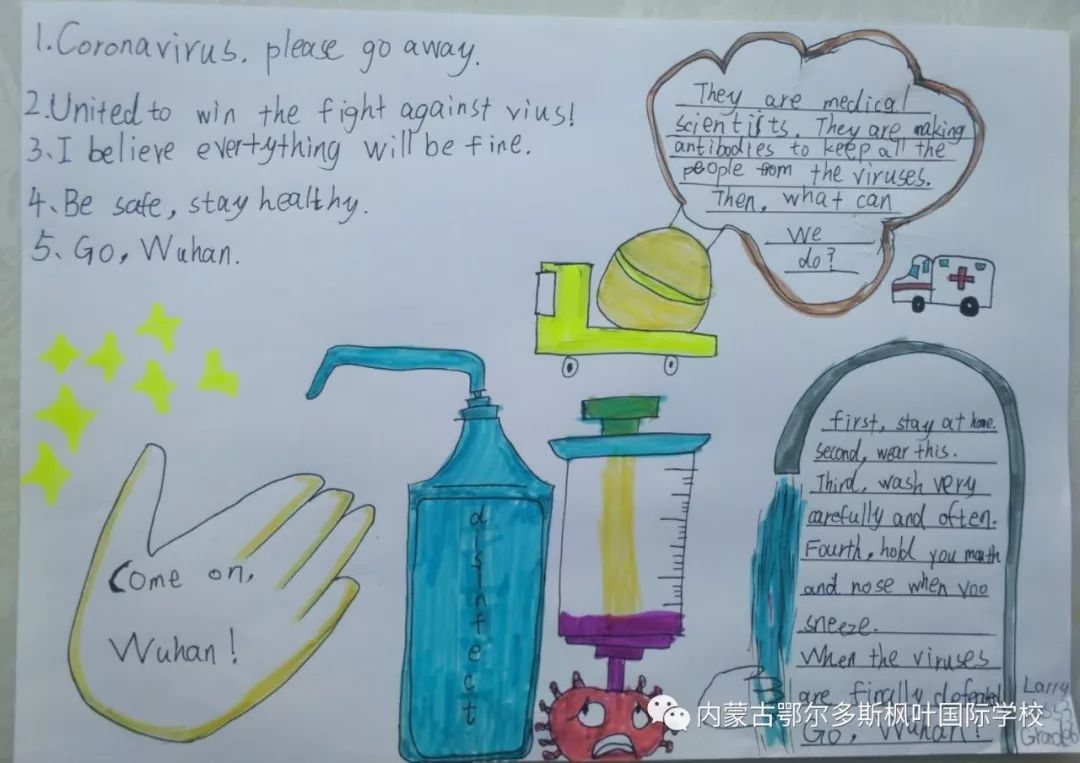 1.Coronavirus. please go away.
2.United to win the fight against vius!
3、I believe evertything will be fine.
4、Be safe, stay healthy.
5、Go, Wuhan.
They are medical
scientists. They are making
antibodies to keep all the
people from the viruses.
Then, what can
we
do?
Come on,
Wuhan!
disinfect
first, stay at home.
second, wear this.
Third, wash very
carefully and often.
Fourth, hold you mouth
and nose when yoo
sneeze.
When the viruses
are finally defeated
Go, Wuhan!
Larry
内蒙古鄂尔多斯枫叶国际学校